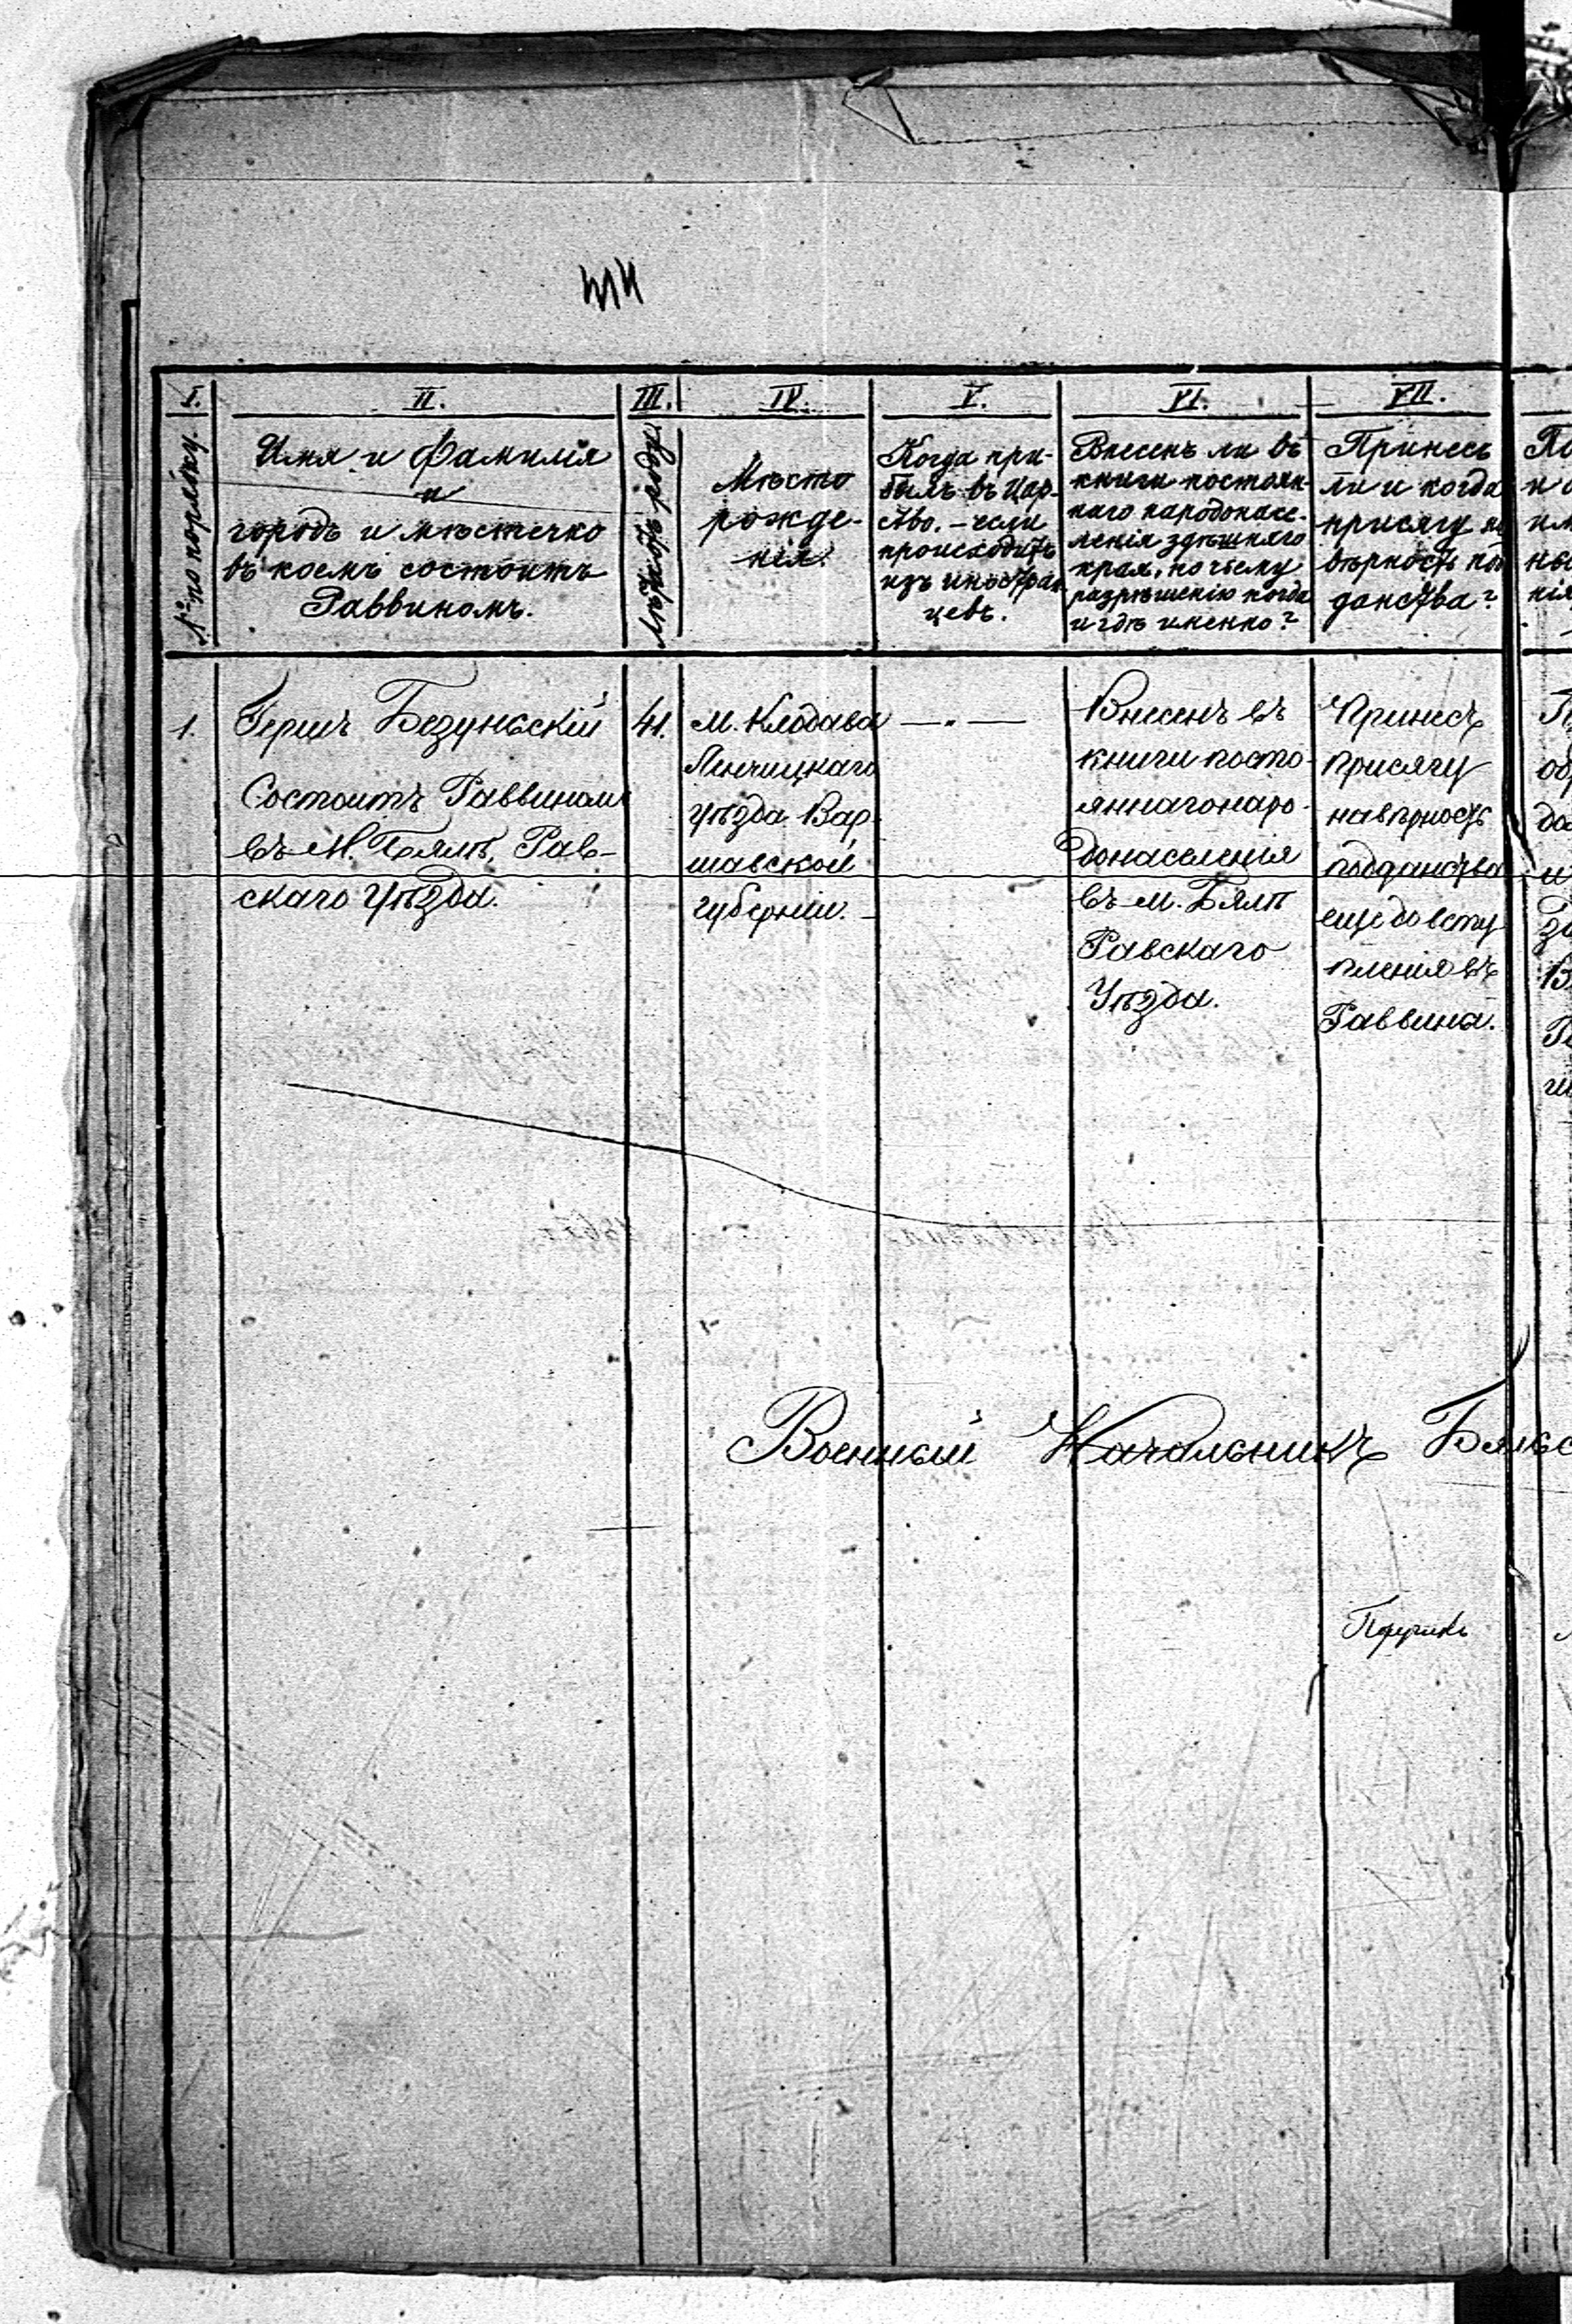 I.
№ по порядку.
II.
Имя и Фамилія
и
городъ и мѣстечко
въ коемъ состоитъ
Раввиномъ.
III.
Лѣтъ отъ роду.
IV.
Мѣсто
рожде-
нія.
V.
Когда при-
былъ въ Цар-
ство. – если
происходитъ
изъ иностран
цевъ.
VI.
Внесенъ ли въ
книги постоян-
наго народонасе-
ленія здѣшняго
края, по чьему
разрѣшенію когда
и гдѣ именно?
VII.
Принесъ
ли и когда
присягу на
вѣрность под
данства?
1.
Гершъ Безунскій
Состоитъ Раввиномъ
въ М. Бялѣ, Рав-
скаго Уѣзда.
41.
м. Клодава
Ленчицкаго
уѣзда Вар-
шавской
губерніи. –
— „ —
Внесенъ въ
книги посто-
яннаго наро-
донаселенія
въ м. Бялѣ
Равскаго
Уѣзда.
Принесъ
присягу
на вѣрность
подданства
еще до всту
пленія въ
Раввина.
Военный Начальникъ
Поручикъ